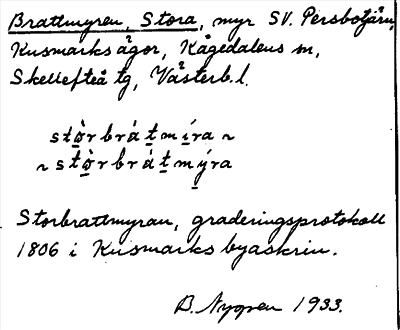 Brattmyren, Stora, myr SV. Persbotjärn,
Kusmarks ägor, Kågedalens sn,
Skellefteå tg, Västerb. l.
stò̱rbráṯmi̱ra ~
~ stò̱rbráṯmý̱ra
Storbrattmyran, graderingsprotokoll
1806 i Kusmarks byaskrin.
B. Nygren 1933.